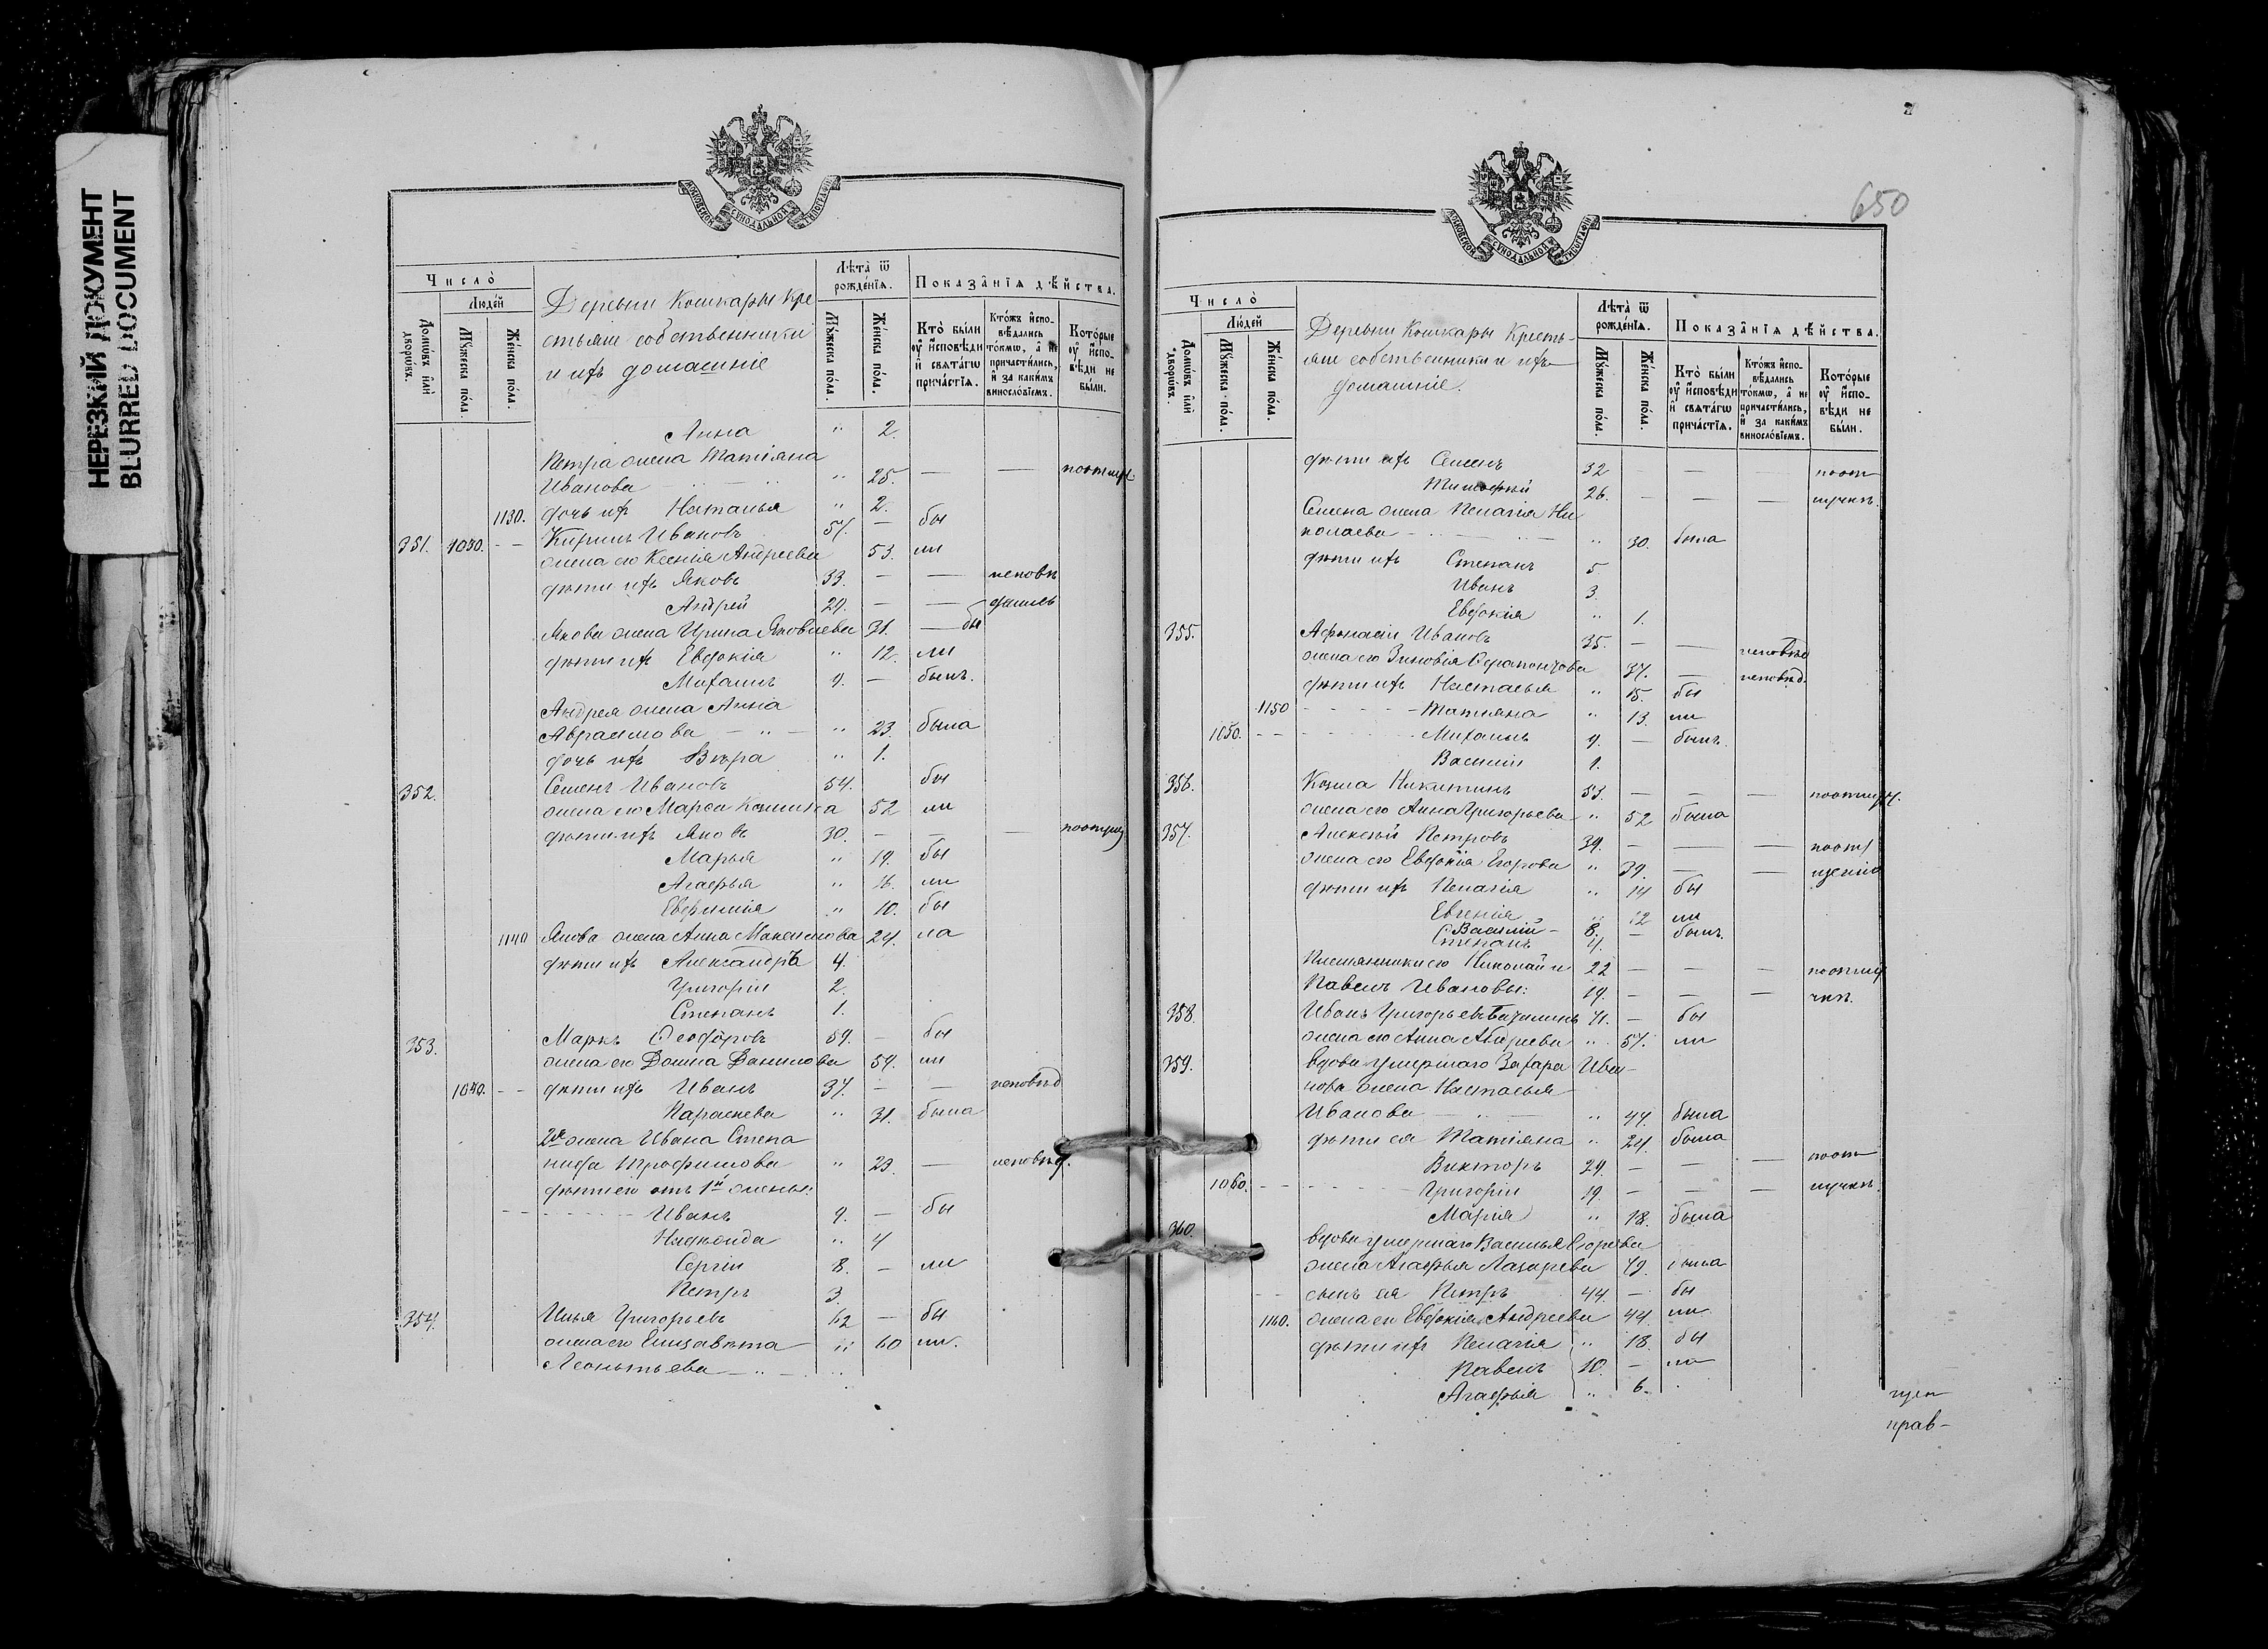 НЕРЕЗКИЙ ДОКУМЕНТ
BLURRED DOCUMENT
МОСКОВСКОЙ СѴНОДАЛЬНОЙ ТИПОГРАФІИ
Число̀
Люде́й
Домѡ́въ и҆лѝ дворѡ́въ.
Мꙋ́жеска по́ла.
Же́нска по́ла.
Деревни Кошкары Кре
стьяне собственники
и ихъ домашніе
Лѣта̀ ѿ рожде́нїѧ.
Мꙋ́жеска по́ла.
Же́нска по́ла.
Показа̂нїѧ дѣ́йства.
Кто̀ бы́ли оу҆ и҆сповѣ́ди и҆ свѧта́гѡ прича́стїѧ.
Кто́жъ и҆сповѣ́дались то́кмѡ, а҆ не причасти́лись, и҆ за каки́мъ винослові́емъ.
Кото́рые оу҆ и҆сповѣ́ди не бы́ли.
Анна " 2.
Петра жена Татіана
Иванова " 25. — —
1130. дочь их Наталья " 2.
351. 1030. - - Кирилъ Ивановъ 57. — бы
жена его Ксенія Андреева 53. ли
дѣти ихъ Яковъ 33. — — исповѣ
Андрей 29. — — дались
Якова жена Ирина Яковлева 31. — бы
дѣти ихъ Евдокія " 12. ли
Михаилъ 9. — былъ.
Андрея жена Анна
Авраамова — " — " 23. была
дочь ихъ Вѣра " 1.
352. Семенъ Ивановъ 54. бы
жена его Марѳа Козмина 52 ли
дѣти ихъ Яковъ 30. — — —
Марья " 19. бы
Агафья " 16. ли
Евфимія " 10. бы
1140 Якова жена Анна Максимова 24. ла
дѣти ихъ Александръ 4.
Григорій 2.
Степанъ 1.
353. Маркъ Ѳеодоровъ 59. — бы
жена его Домна Данилова 54. ли
1040. - - дѣти ихъ Иванъ 37. — — исповѣд
Параскева " 31. была
2я жена Ивана Степа
нида Трофимова " 23. — исповѣд.
дѣти его отъ 1й жены:
Иванъ 9. — бы
" 4
Сергій 8. — ли
Петръ 3.
354. Илья Григорьевъ 62 — бы
жена его Елизавета " 60 ли.
Леонтьева — " —
650
МОСКОВСКОЙ СѴНОДАЛЬНОЙ ТИПОГРАФІИ
Число̀
Люде́й
Домѡ́въ и҆лѝ дворѡ́въ.
Мꙋ́жеска по́ла.
Же́нска по́ла.
Деревни Кошкары Кресть-
яне собственники и ихъ
домашніе.
Лѣта̀ ѿ рожде́нїѧ.
Мꙋ́жеска по́ла.
Же́нска по́ла.
Показа̂нїѧ дѣ́йства.
Кто̀ бы́ли оу҆ и҆сповѣ́ди и҆ свѧта́гѡ прича́стїѧ.
Кто́жъ и҆сповѣ́дались то́кмѡ, а҆ не причасти́лись, и҆ за каки́мъ винослові́емъ.
Кото́рые оу҆ и҆сповѣ́ди не бы́ли.
дѣти ихъ Семенъ 32 — — — поот
Тимофей 26. — — — лучкѣ.
Семена жена Пелагія Ни
колаева " 30. была
дѣти ихъ Степанъ 5
Иванъ 3.
Евдокія " 1.
355. Афанасій Ивановъ 35. — — исповѣд
жена его Зиновія Ферапонтова 37. — исповѣд.
дѣти ихъ Настасья " 15. бы
1150 - - - - Татіяна " 13. ли
1050. - - - - - Михаилъ 9. — былъ.
Василій 1.
356. Козма Никитинъ 53. — — —
жена его Анна Григорьева " 52 была
357. Алексѣй Петровъ 39. — — —
жена его Евдокія Егорова " 39. — —
дѣти ихъ Пелагія " 14 бы
Евгенія " 12 ли
Василій — 8. — былъ.
Степанъ 4.
Племянники его Николай и 22 — — —
Павелъ Ивановы: 19. — — —
358. Иванъ Григорьевъ 71. — бы
жена его Анна Андреева " 57. ли
359. вдова умершаго Захара Ива-
нова жена Настасья
Иванова " 47. была
дѣти ея Татіяна " 24. была
Викторъ 29. — — — поот
1060. - - - - - Григорій 19. — — — лучкѣ.
Марія " 18. была
360. вдова умершаго Василья Егорова
жена Агафья Лазарева 79. была
сынъ ея Петръ 44. — бы
1160. жена его Евдокія Андреева 44. ли
дѣти ихъ Пелагія " 18. бы
Павелъ 10. — ли
Агафья " 6.
прав-